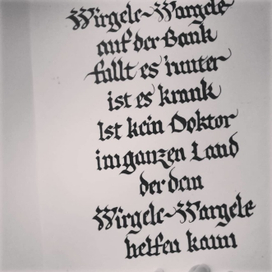 Wirgele-Wargele
auf der Bank
fällt es hunter
ist es krank
Ist kein Doktor
im ganzen Land
der dem
Wirgele-Wargele
helfen kann